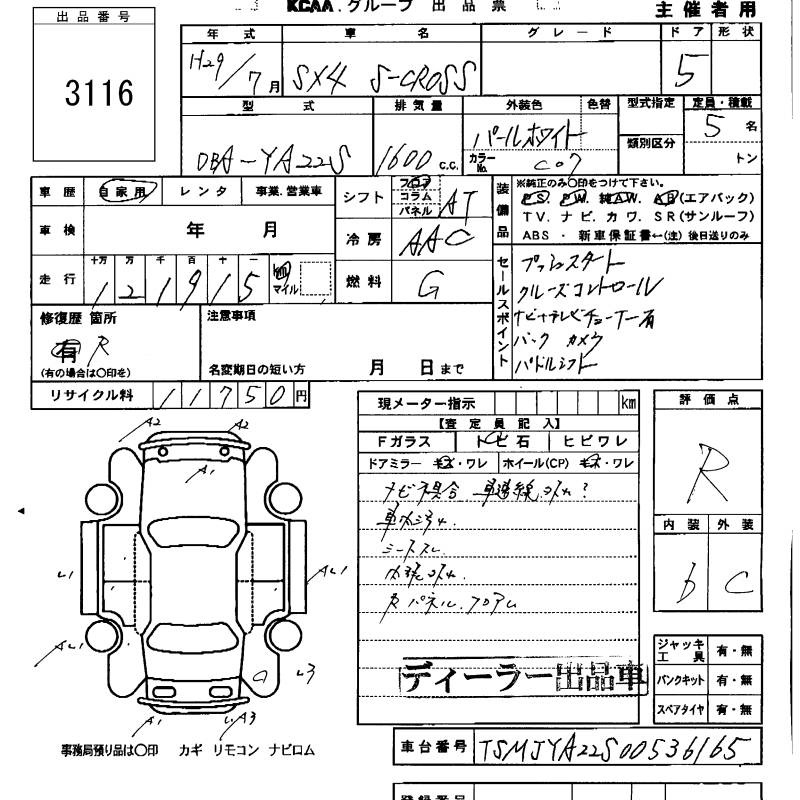 KCAA.グループ 出品票
主催者用
出品番号
3116
年式 車名 グレード ドア 形状
H29/7月 SX4 S-CROSS 5
型式 排気量 外装色 色替 型式指定 定員・積載
DBA-YA22S 1600 c.c. パールホワイト 類別区分 5名
カラーNo. C07 トン
車歴 自家用 レンタ 事業.営業車
車検 年 月
走行 十万 万 千 百 十 一
121915 km マイル
シフト フロア コラム パネル AT
冷房 AAC
燃料 G
装備品
※純正のみ〇印をつけて下さい。
P.S. P.W. 純A.W. A.B(エアバック)
T V. ナ ビ. カ ワ. S R(サンルーフ)
ABS ・ 新車保証書←(注)後日送りのみ
セールスポイント
プッシュスタート
クルーズコントロール
ナビ+テレビチューナー有
バック カメラ
パドルシフト
修復歴 箇所
有 R
(有の場合は〇印を)
注意事項
名変期日の短い方 月 日まで
リサイクル料 11750円
現メーター指示 km
【査定員記入】
Fガラス トビ石 ヒビワレ
ドアミラー キズ・ワレ ホイール(CP) キズ・ワレ
ナビ不具合
シートスレ
内張ヨゴレ
Rパネル.フロアム
ディーラー出品車
評価点
R
内装 外装
b C
ジャッキ工具 有・無
パンクキット 有・無
スペアタイヤ 有・無
A2 A2
A1
L1 AL1
AL1 L3
A1 LA3
事務局預り品は〇印 カギ リモコン ナビロム
車台番号 TSMJYA22S00536165
登録番号